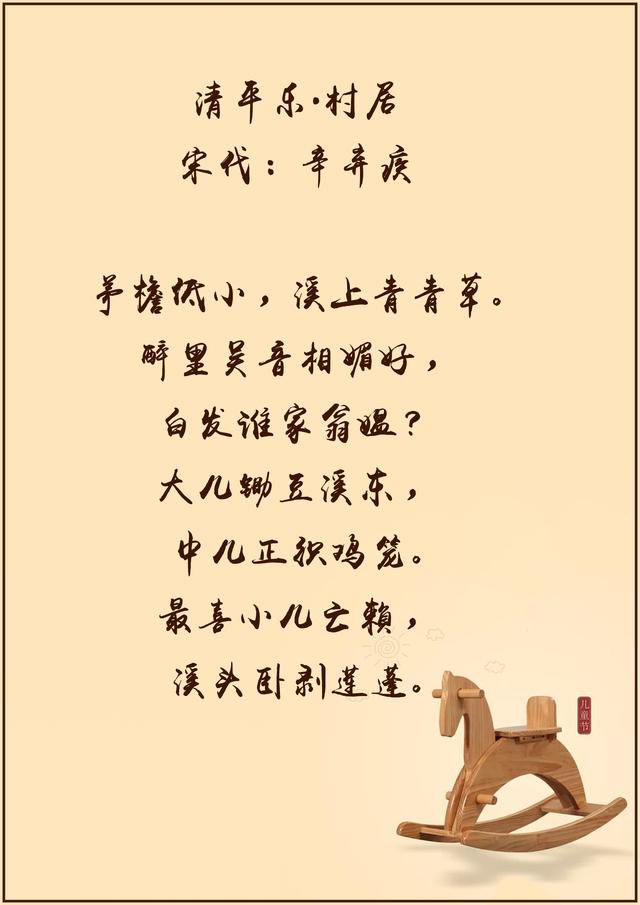 清平乐·村居
宋代：辛弃疾
茅檐低小，溪上青青草。
醉里吴音相媚好，
白发谁家翁媪？
大儿锄豆溪东，
中儿正织鸡笼。
最喜小儿亡賴，
溪头卧剥莲蓬。
儿童节